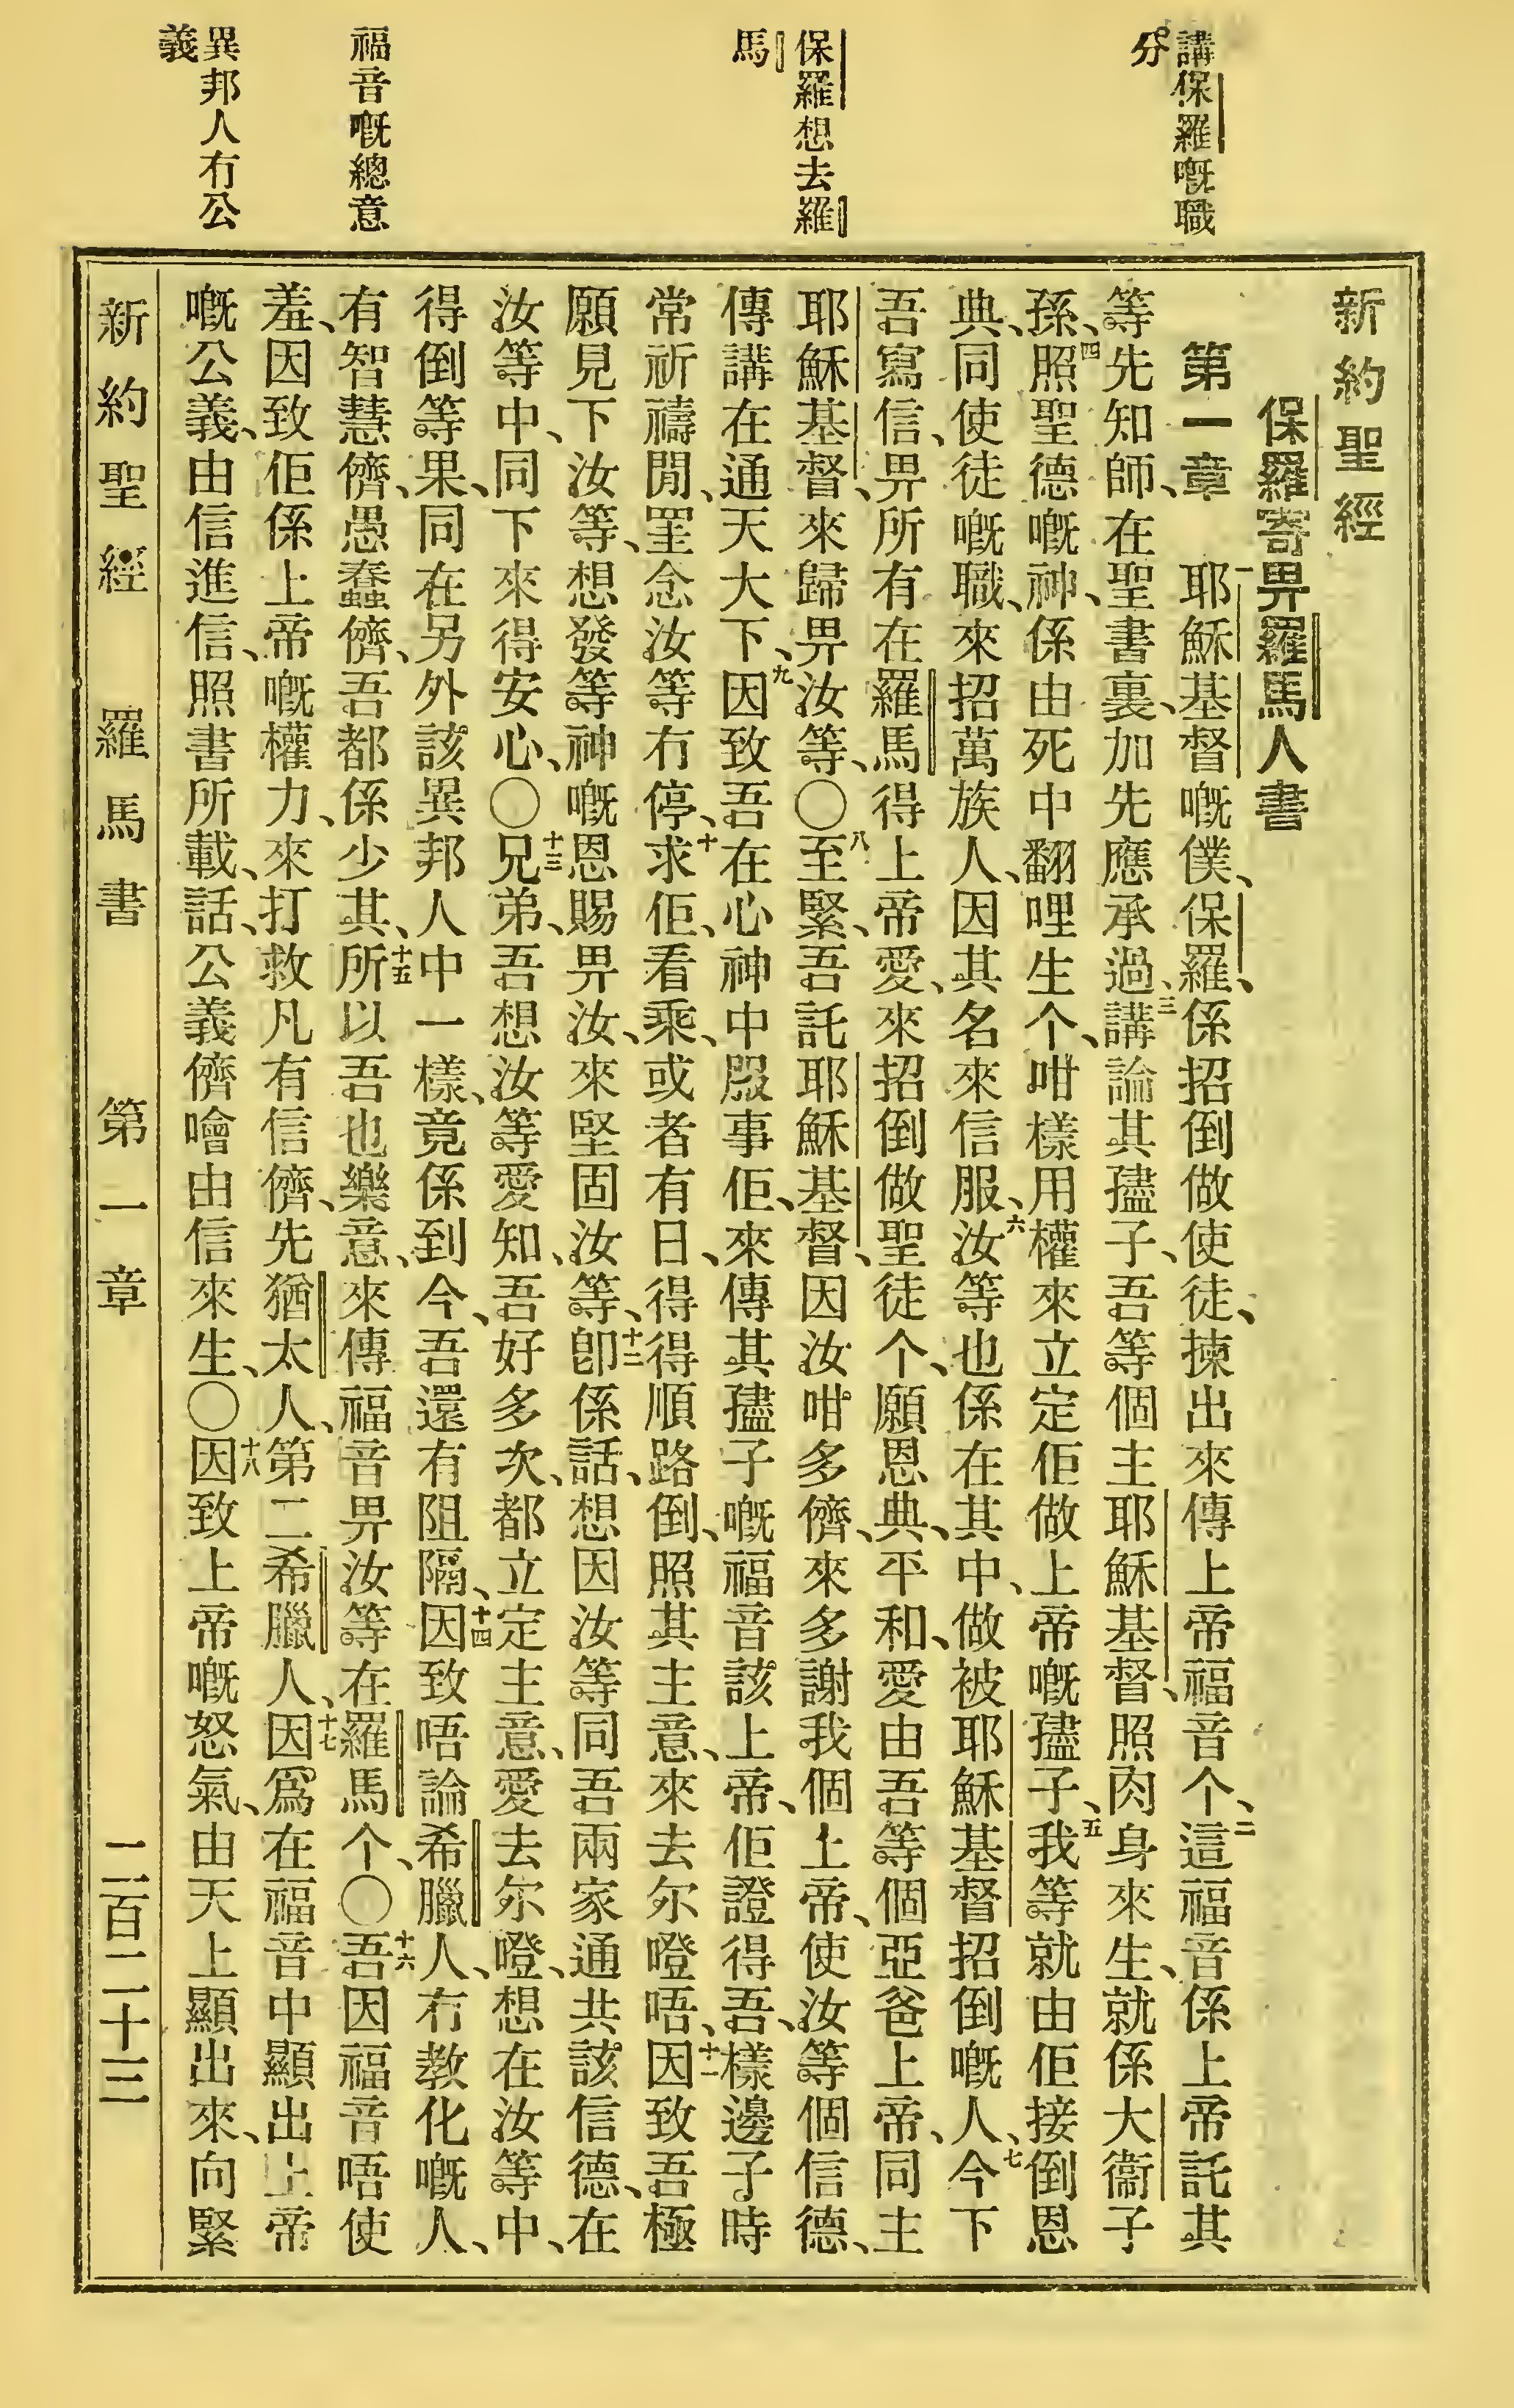 講保羅嘅職
分
保羅想去羅
馬
福音嘅總意
異邦人冇公
義
新約聖經
保羅寄畀羅馬人書
第一章 一耶穌基督嘅僕、保羅、係招倒做使徒、揀出來傳上帝福音个、二這福音係上帝託其
等先知師、在聖書裏、加先應承過、三講論其孻子、吾等個主耶穌基督、照肉身來生、就係大衞子
孫、四照聖德嘅神、係由死中翻哩生个、咁樣用權來立定佢做上帝嘅孻子、五我等就由佢接倒恩
典、同使徒嘅職、來招萬族人、因其名來信服、六汝等也係在其中、做被耶穌基督招倒嘅人、七今下
吾寫信、畀所有在羅馬得上帝愛、來招倒做聖徒个、願恩典、平和、愛由吾等個亞爸上帝、同主
耶穌基督、來歸畀汝等、〇八至緊、吾託耶穌基督、因汝咁多儕、來多謝我個上帝、使汝等個信德、
傳講在通天大下、九因致吾在心神中服事佢、來傳其孻子嘅福音該上帝、佢證得吾、樣邊子時
常祈禱閒、罣念汝等冇停、十求佢、看乘、或者有日、得得順路倒、照其主意、來去尔噔唔、十一因致吾極
願見下汝等、想發等神嘅恩賜畀汝、來堅固汝等、十二卽係話、想因汝等同吾兩家通共該信德、在
汝等中、同下來得安心、〇十三兄弟、吾想汝等愛知、吾好多次、都立定主意、愛去尔噔、想在汝等中、
得倒等果、同在另外該異邦人中一樣、竟係到今、吾還有阻隔、十四因致唔論希臘人、冇教化嘅人、
有智慧儕、愚蠢儕、吾都係少其、十五所以吾也樂意、來傳福音畀汝等在羅馬个、〇十六吾因福音唔使
羞、因致佢係上帝嘅權力、來打救凡有信儕、先猶太人、第二希臘人、十七因爲在福音中顯出上帝
嘅公義、由信進信、照書所載、話、公義儕噲由信來生、〇十八因致上帝嘅怒氣、由天上顯出來、向緊
新約聖經 羅馬書 第一章 二百二十三